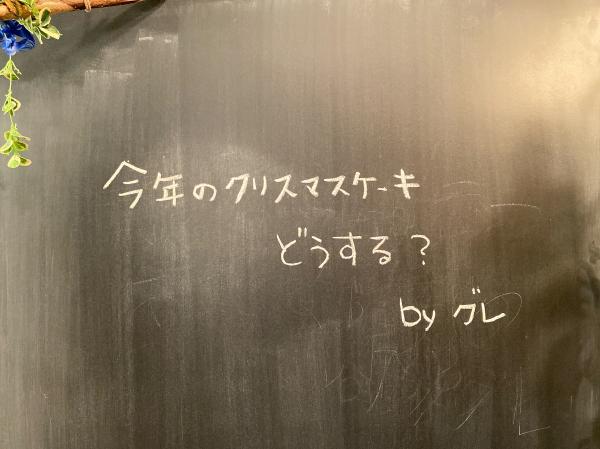 今年のクリスマスケーキ
どうする？
by グレ